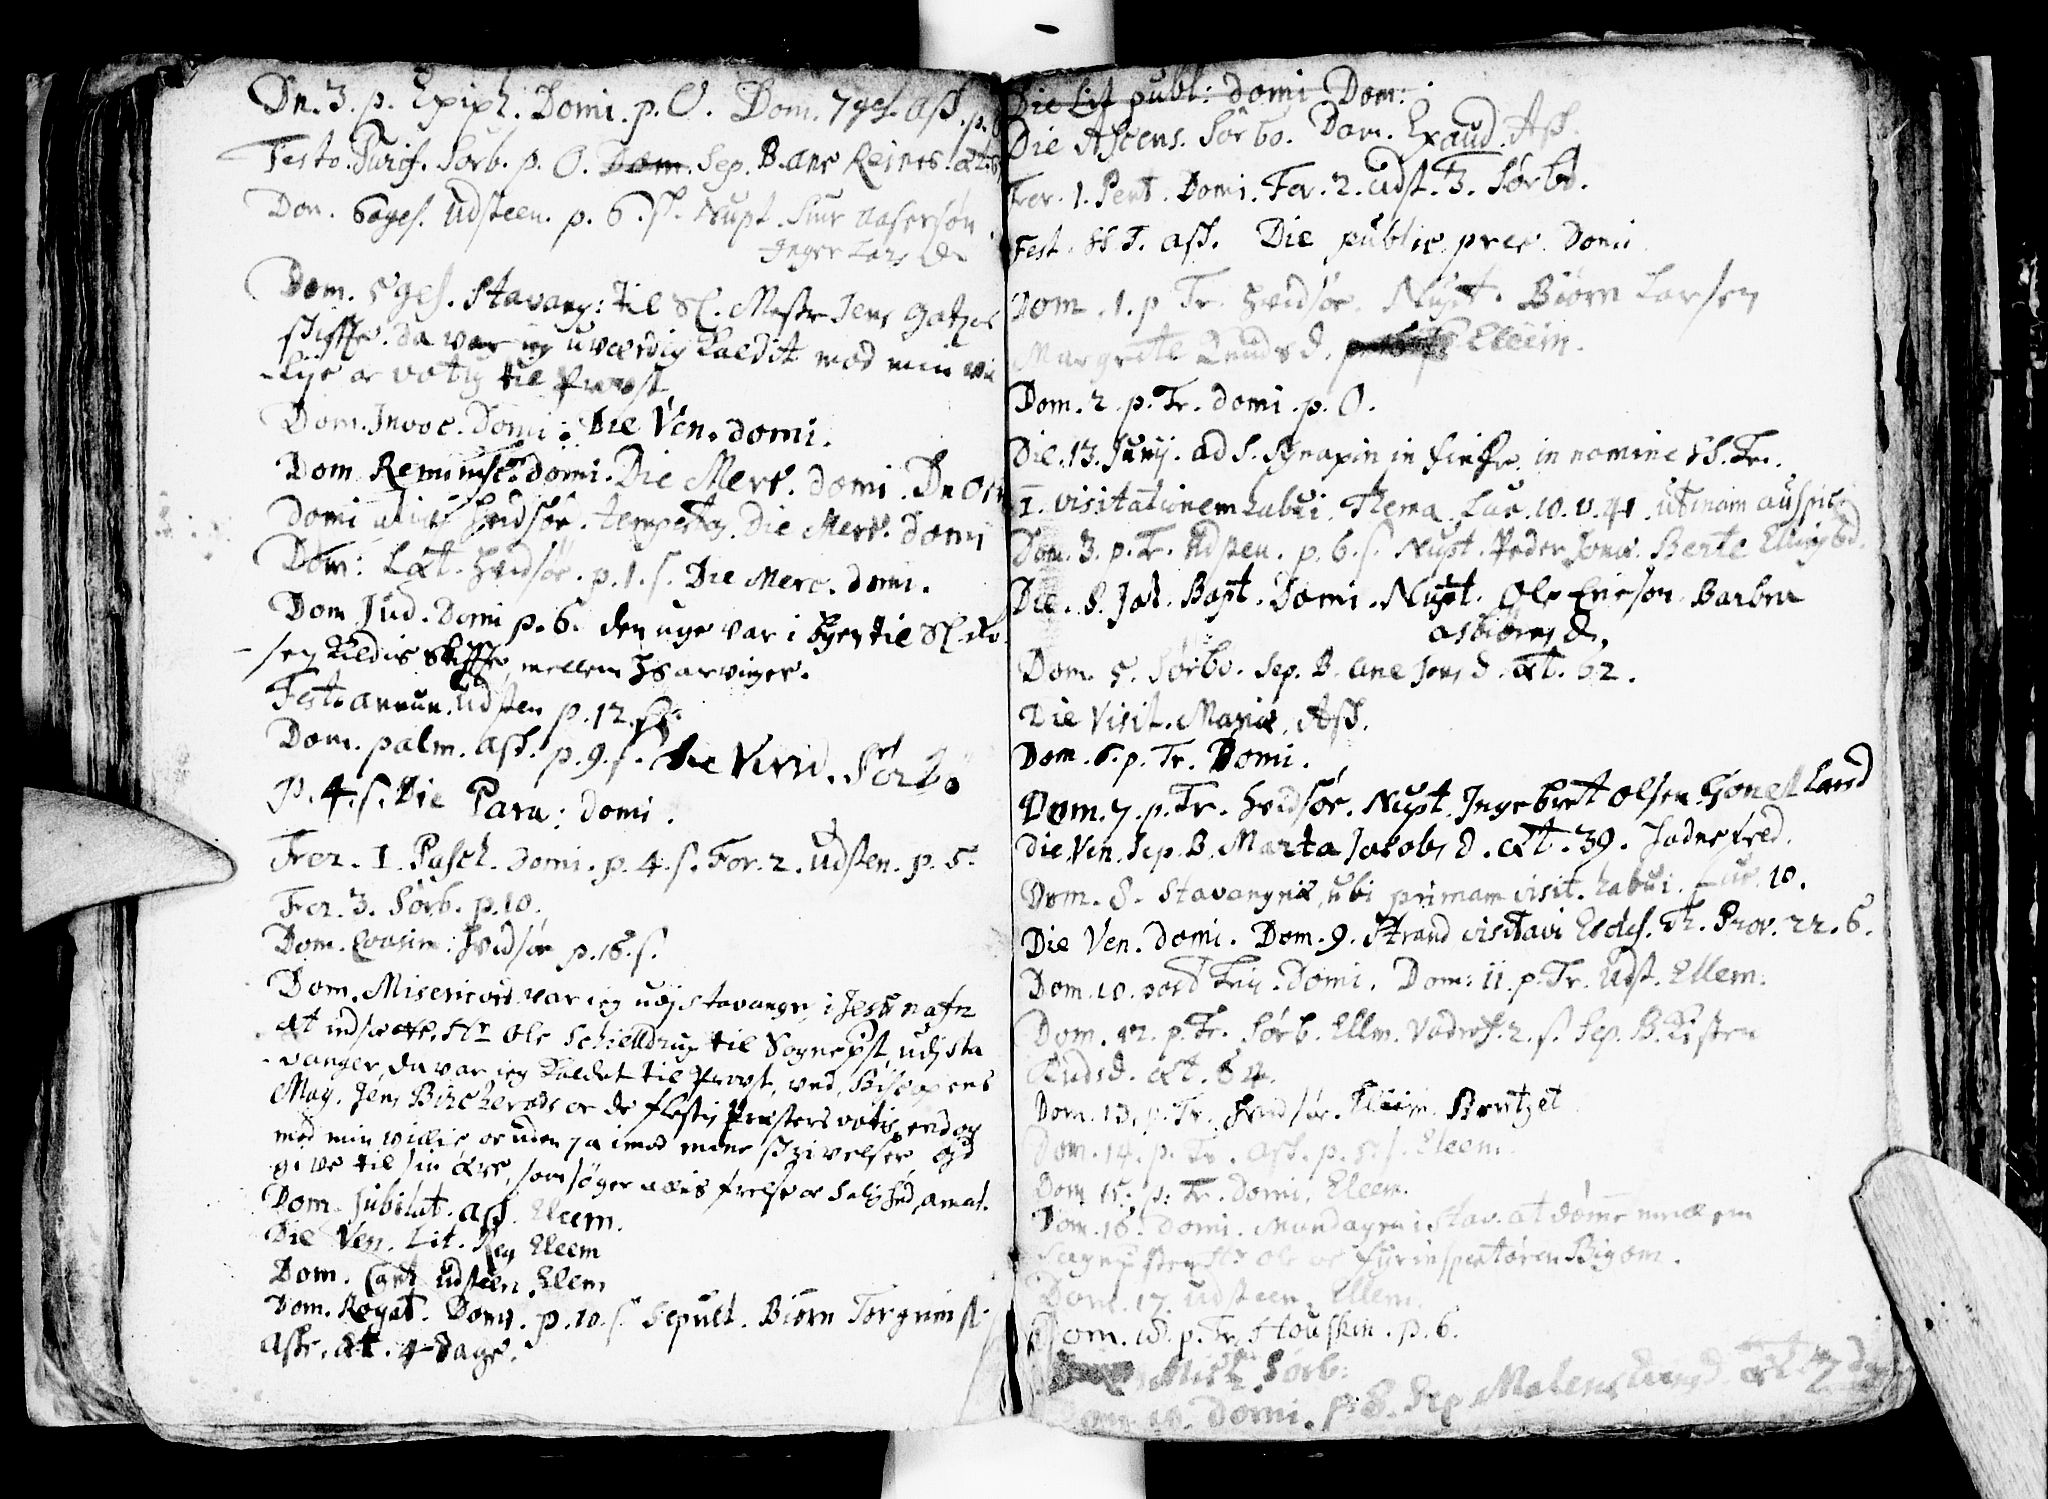 Dn. 3. p. Epiph. Domi. p. O. Dom. 7ges. ass. p.
Festo. Purif. Sørb. p. O. Dom. Sep. B. ane Reiners. æt.
Dom. 6ages. Udsteen. p. 6. s. Nupt. Siur Aasersøn
Inger Lars D.
Dom. 5ges. Stavang: til Sl. Mester Jens Gatzes
skiffte. da var jeg uværdig kaldet mod min vi
-lije oc votis til Provst.
Dom. Invoc. Domi: Die Ven. domi.
Dom Reminisc. domi. Die Merc. domi. Dn Oc
Domi alias Hvidsøe. tempestas. Die Merc. Domi
Dom: Læt. Hvidsøe. p. 1. s. Die Merc. domi.
Dom Jud. Domi p. 6. den uge var i byen til Sl.
-sen Kieldis skiffte mellem hs arvinger.
Festo annun. Udsten p. 12. s.
Dom. palm. ass. p. 9. s. Die Virid. Sørbø
p. 4. s. Die Para: domi.
Fer. I. Pasch. Domi. p. 4. s. Fer. 2. Udsten. p. 5.
Fer. 3. Sørb. p. 10.
Dom. Qvasim: Hvidsøe p. 16. s.
Dom. Misericord. var jeg udj stavanger i Jesu nafn
at indsætte Hr Ole Schielldrup til Sognepst, udj sta
-vanger, da var jeg kaldet til Provst, ved, Biscopens
Mag. Jens Bircherods oc de flestis Presters votis, endog
mod min villie oc uden ja imod mine skrivelser, Gud
give til sin ære, som søger alles frelse oc Salighed, amen.
Dom. Jubilat. ass. Eleem.
Die Ven. Lit. Reg Eleem
Dom. Cant. udsteen. Elem
Dom. Rogat. Domi. p. 10. s. Sepult. Biørn Torgrims
Aske. æt. 4 dage.
Die Lit publ: domi Dom:
Die Ascens. Sørbo. Dom. Exaud. Ass.
Fer. 1. Pent. Domi. Fer. 2. udst. 3. Sørbø.
Fest. SS T. ass. Die public. prec. Domi
Dom. 1. p Tr. Hvidsøe. Nupt. Biørn Larsen
Margrete Knuds d. Eleem.
Dom. 2. p. Tr. domi. p. O.
Die. 13. Junij. ad S. in nomine SS. Tr.
I. visitationem habui. Thema Luc. 10. v. 41. utinam auspic
Dom. 3. p. Tr. Udsten. p. 6. s. Nupt. Peder Jons. Berte Ellings d.
Die. S. Joh. Bapt. Domi. Nupt. Ole Ericsøn Barbra
Asbiørns d.
Dom. 5. Sørbo. Sep. B. ane Jens d. æt. 62.
Die Visit. Mariæ. Ass.
Dom. 6. p. Tr. Domi.
Dom. 7. p. Tr. Hvidsøe. Nupt. Ingebret Olsen Land
Die Ven. Sep. B. Marta Jacobs d. æt. 39.
Dom. 8. Stavangriæ, ubi primam visit. habui. Luc. 10.
Die Ven. domi. Dom. 9. Strand visitavi Eccles. Th. Prov. 22. 6.
Dom. 10. post Trin. Domi. Dom: 11. p. Tr. Udst. Ellem.
Dom. 12. p. Tr. Sørb. Ellm. 2. s. Sep. B. Kisten
Knuds d. æt. 84.
Dom. 13. p. Tr. Hvidsøe. Eleem.
Dom. 14. p. Tr. ass. p. 5. s. Eleem.
Dom 15. p. Tr. Domi. Eleem.
Dom. 16. Domi. Mandagen i Stav. at dømme mellem
Sognepsten Hr ole oc Bigom.
Dom. 17. Udsteen. Ellem.
Dom. 18. p. Tr. p. 6.
Mich. Sørb:
Dom 19. domi. p. 8. Sep Malene Knuds d. æt